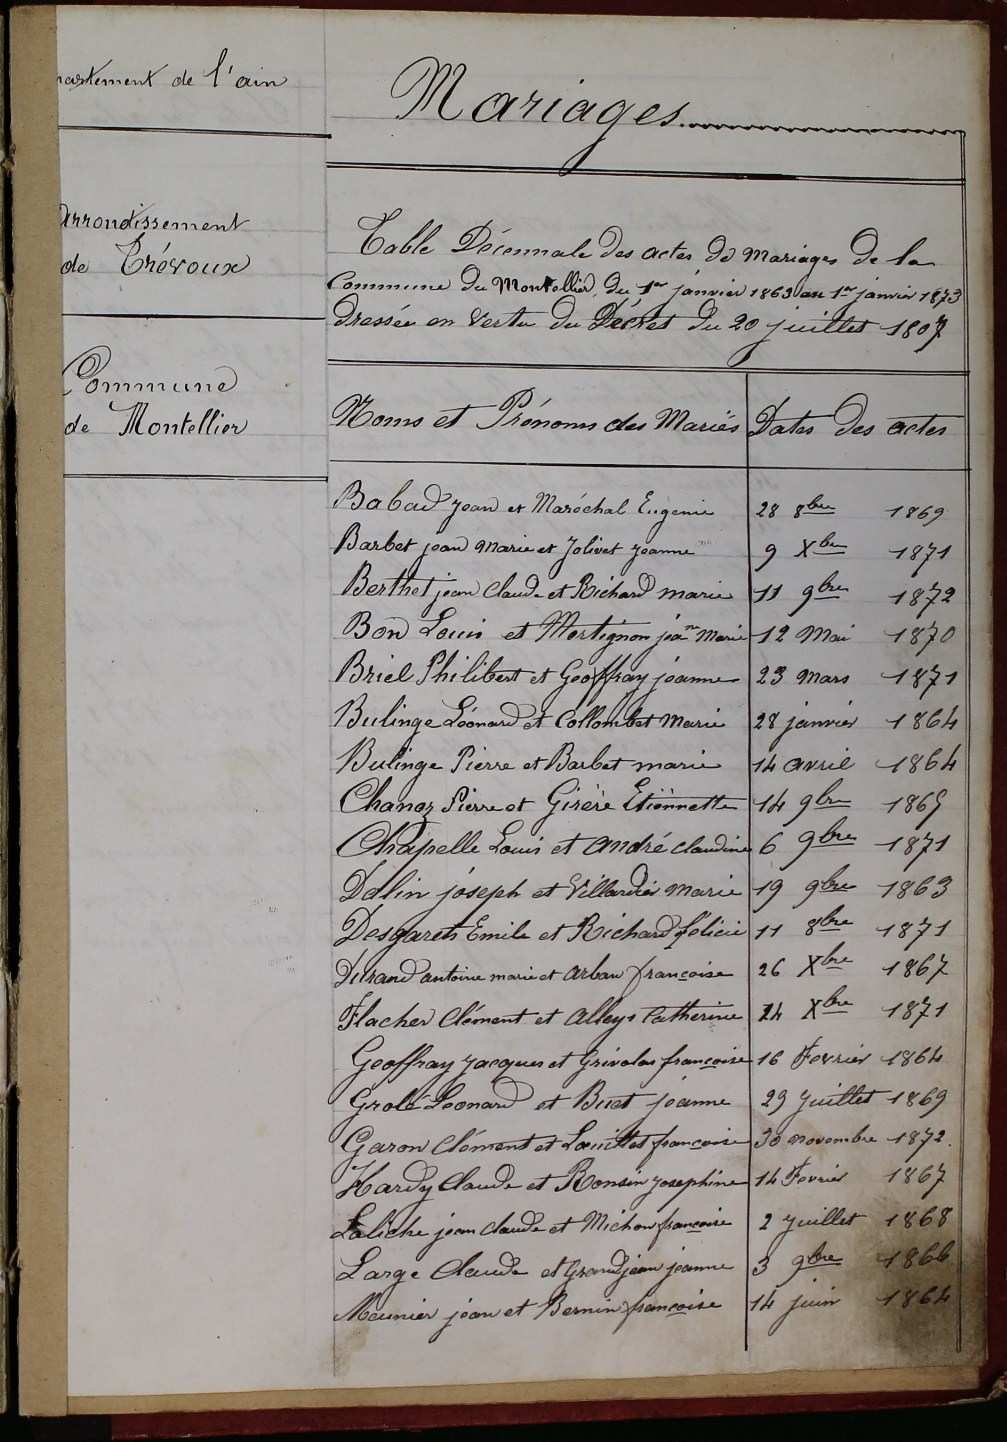 partement de l'ain
arrondissement
de Trévoux
Commune
de Montellier
Mariages
Table Décennale des actes de mariages de la
Commune du Montellier, du 1er janvier 1863 au 1er janvier 1873
dressée en vertu du Décret du 20 juillet 1807
Noms et Prénoms des Mariés Dates des actes
Babad jean et Maréchal Eugenie 28 8bre 1869
Barbet jean marie et Jolivet jeanne 9 Xbre 1871
Berthet jean Claude et Richard marie 11 9bre 1872
Bon Louis et Mortignon jeanne Marie 12 Mai 1870
Briel Philibert et Geoffray jeanne 23 mars 1871
Bulinge Léonard et Collombet Marie 28 janvier 1864
Bulinge Pierre et Barbet marie 14 avril 1864
Chanoz Pierre et Girére Etiennette 14 9bre 1865
Chapelle Louis et andré claudine 6 9bre 1871
Dalin joseph et Villardier marie 19 9bre 1863
Desgarets Emile et Richard félicie 11 8bre 1871
Durand antoine marie et arban françoise 26 Xbre 1867
Flacher Clément et Alleys Catherine 24 Xbre 1871
Geoffray jacques et Grivolas françoise 16 Fevrier 1864
Grolé Léonard et Buet jeanne 29 juillet 1869
Garon Clément et françoise 30 novembre 1872
Hardy Claude et Ronsin josephine 14 Fevrier 1867
Laliche jean claude et Michon françoise 2 juillet 1868
Large Claude et Grandjean jeanne 3 9bre 1866
Meunier jean et Bernin françoise 14 juin 1864